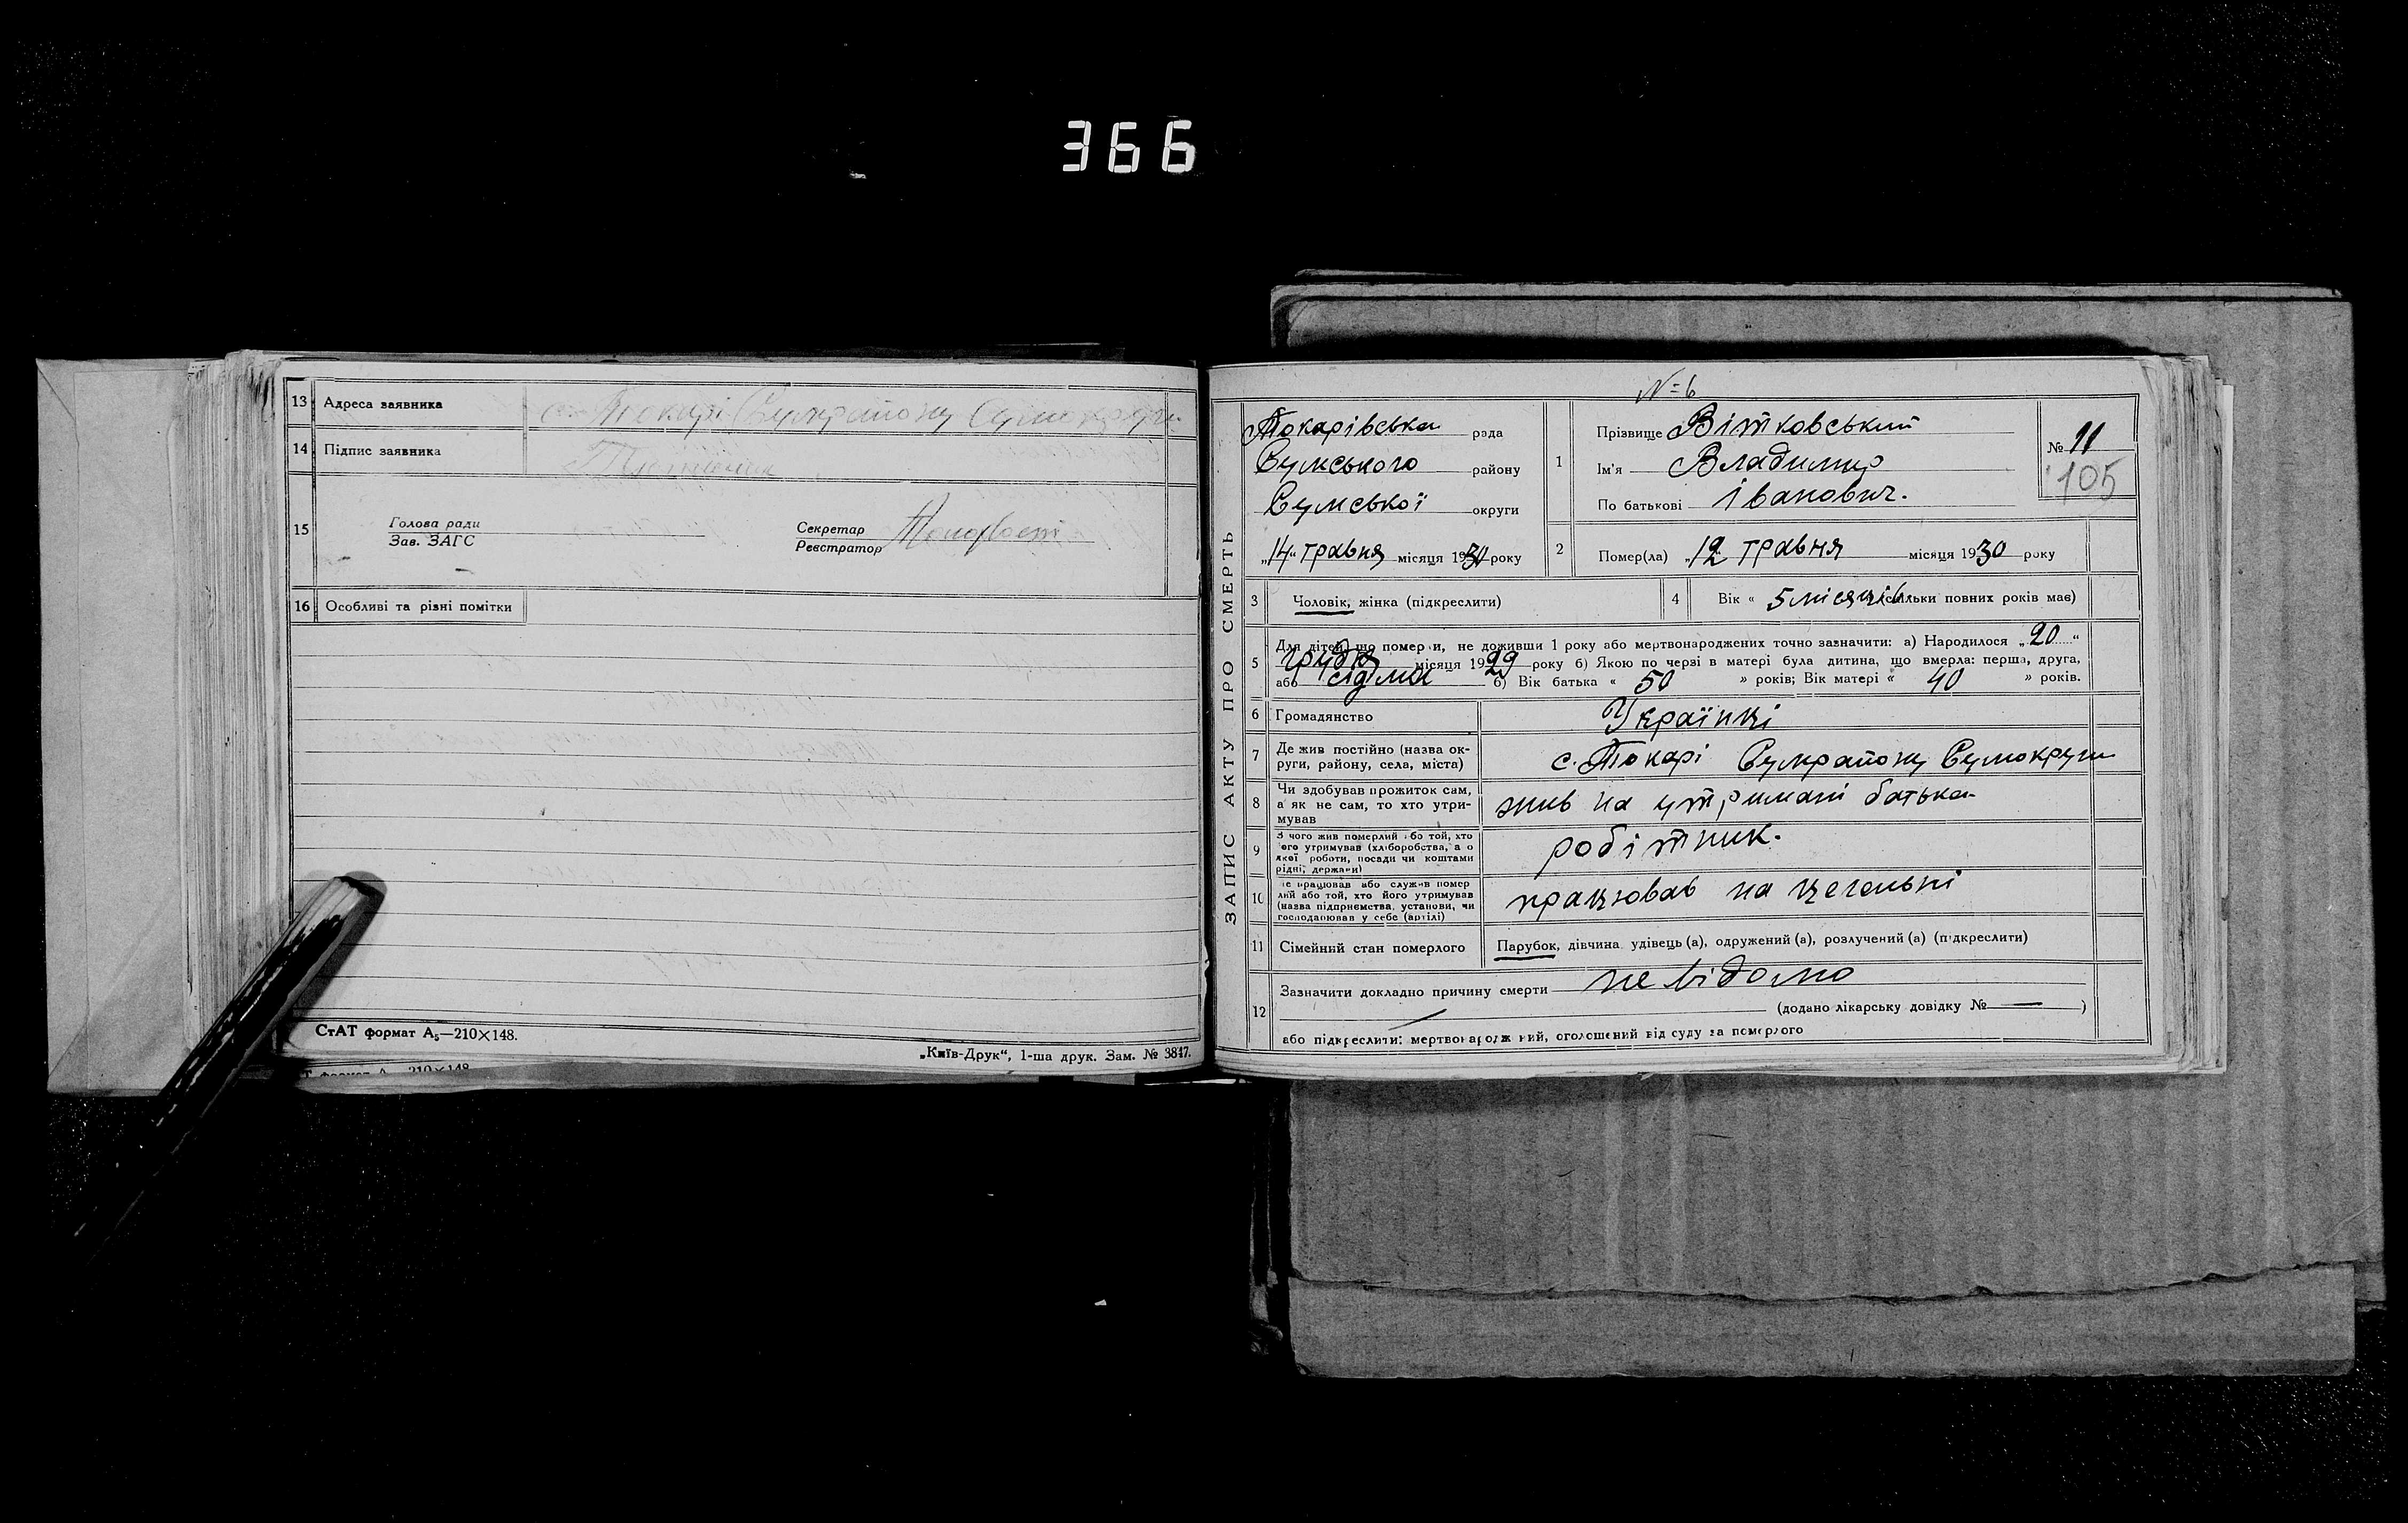 366
13 Адреса заявника с. Токарі Сумрайону Сумокруги
14 Підпис заявника
15 Голова ради
Зав. ЗАГС
Секретар
Реєстратор
16 Особливі та різні помітки
СтАТ формат А₅—210×148.
„Київ-Друк“, 1-ша друк. Зам. № 3847.
ЗАПИС АКТУ ПРО СМЕРТЬ
N=6
Токарівська рада
Сумського району
Сумської округи
„14“ травня місяця 1930 року
1 Прізвище Вітковський
Ім'я Владимир
По батькові Іванович.
№ 11
105
2 Помер(ла) „12 травня місяця 1930 року
3 Чоловік, жінка (підкреслити)
4 Вік « 5 місяців (скільки повних років має)
5 Для дітей, що померли, не доживши 1 року або мертвонароджених точно зазначити: а) Народилося „20“
грудня місяця 1929 року б) Якою по черзі в матері була дитина, що вмерла: перша, друга,
або сідма б) Вік батька « 50 » років; Вік матері « 40 » років.
6 Громадянство Українці
7 Де жив постійно (назва ок-
руги, району, села, міста) с. Токарі Сумрайону Сумокруги
8 Чи здобував прожиток сам,
а як не сам, то хто утри-
мував жив на утримані батька
9 З чого жив померлий або той, хто
його утримував (хліборобства, а о
якої роботи, посади чи коштами
рідні, держави) робітник.
10 Де працював або служив помер
лий або той, хто його утримував
(назва підприємства, установи, чи
господарював у себе (артілі) працював на цегельні
11 Сімейний стан померлого Парубок, дівчина удівець (а), одружений (а), розлучений (а) (підкреслити)
12 Зазначити докладно причину смерти невідомо
(додано лікарську довідку № — )
або підкреслити: мертвонароджений, оголошений від суду за померлого